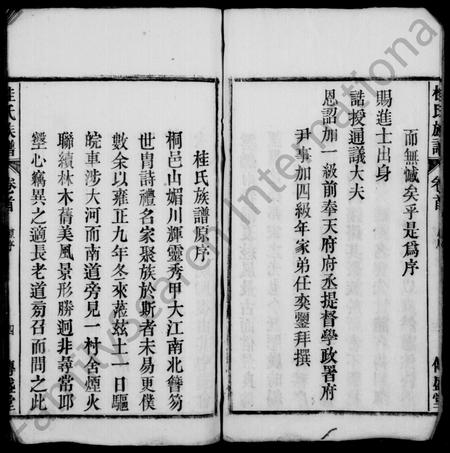 而無憾矣乎是為序
賜進士出身
誥授通議大夫
恩詔加一級前奉天府府丞提督學政署府
尹事加四級年家弟任奕鑾拜撰
桂氏族譜
卷首
桂氏族譜原序
桐邑山媚川輝靈秀甲大江南北簪笏
世胄詩禮名家聚族於斯者未易更僕
數余以雍正九年冬來蒞玆土一日驅
皖車涉大河而南道旁見一村舍煙火
聯續林木菁美風景形勝迥非尋常耶
壑心竊異之適長老道芻召而問之此
桂氏族譜
卷首
原序
四
傳盛堂
FamilySearch International